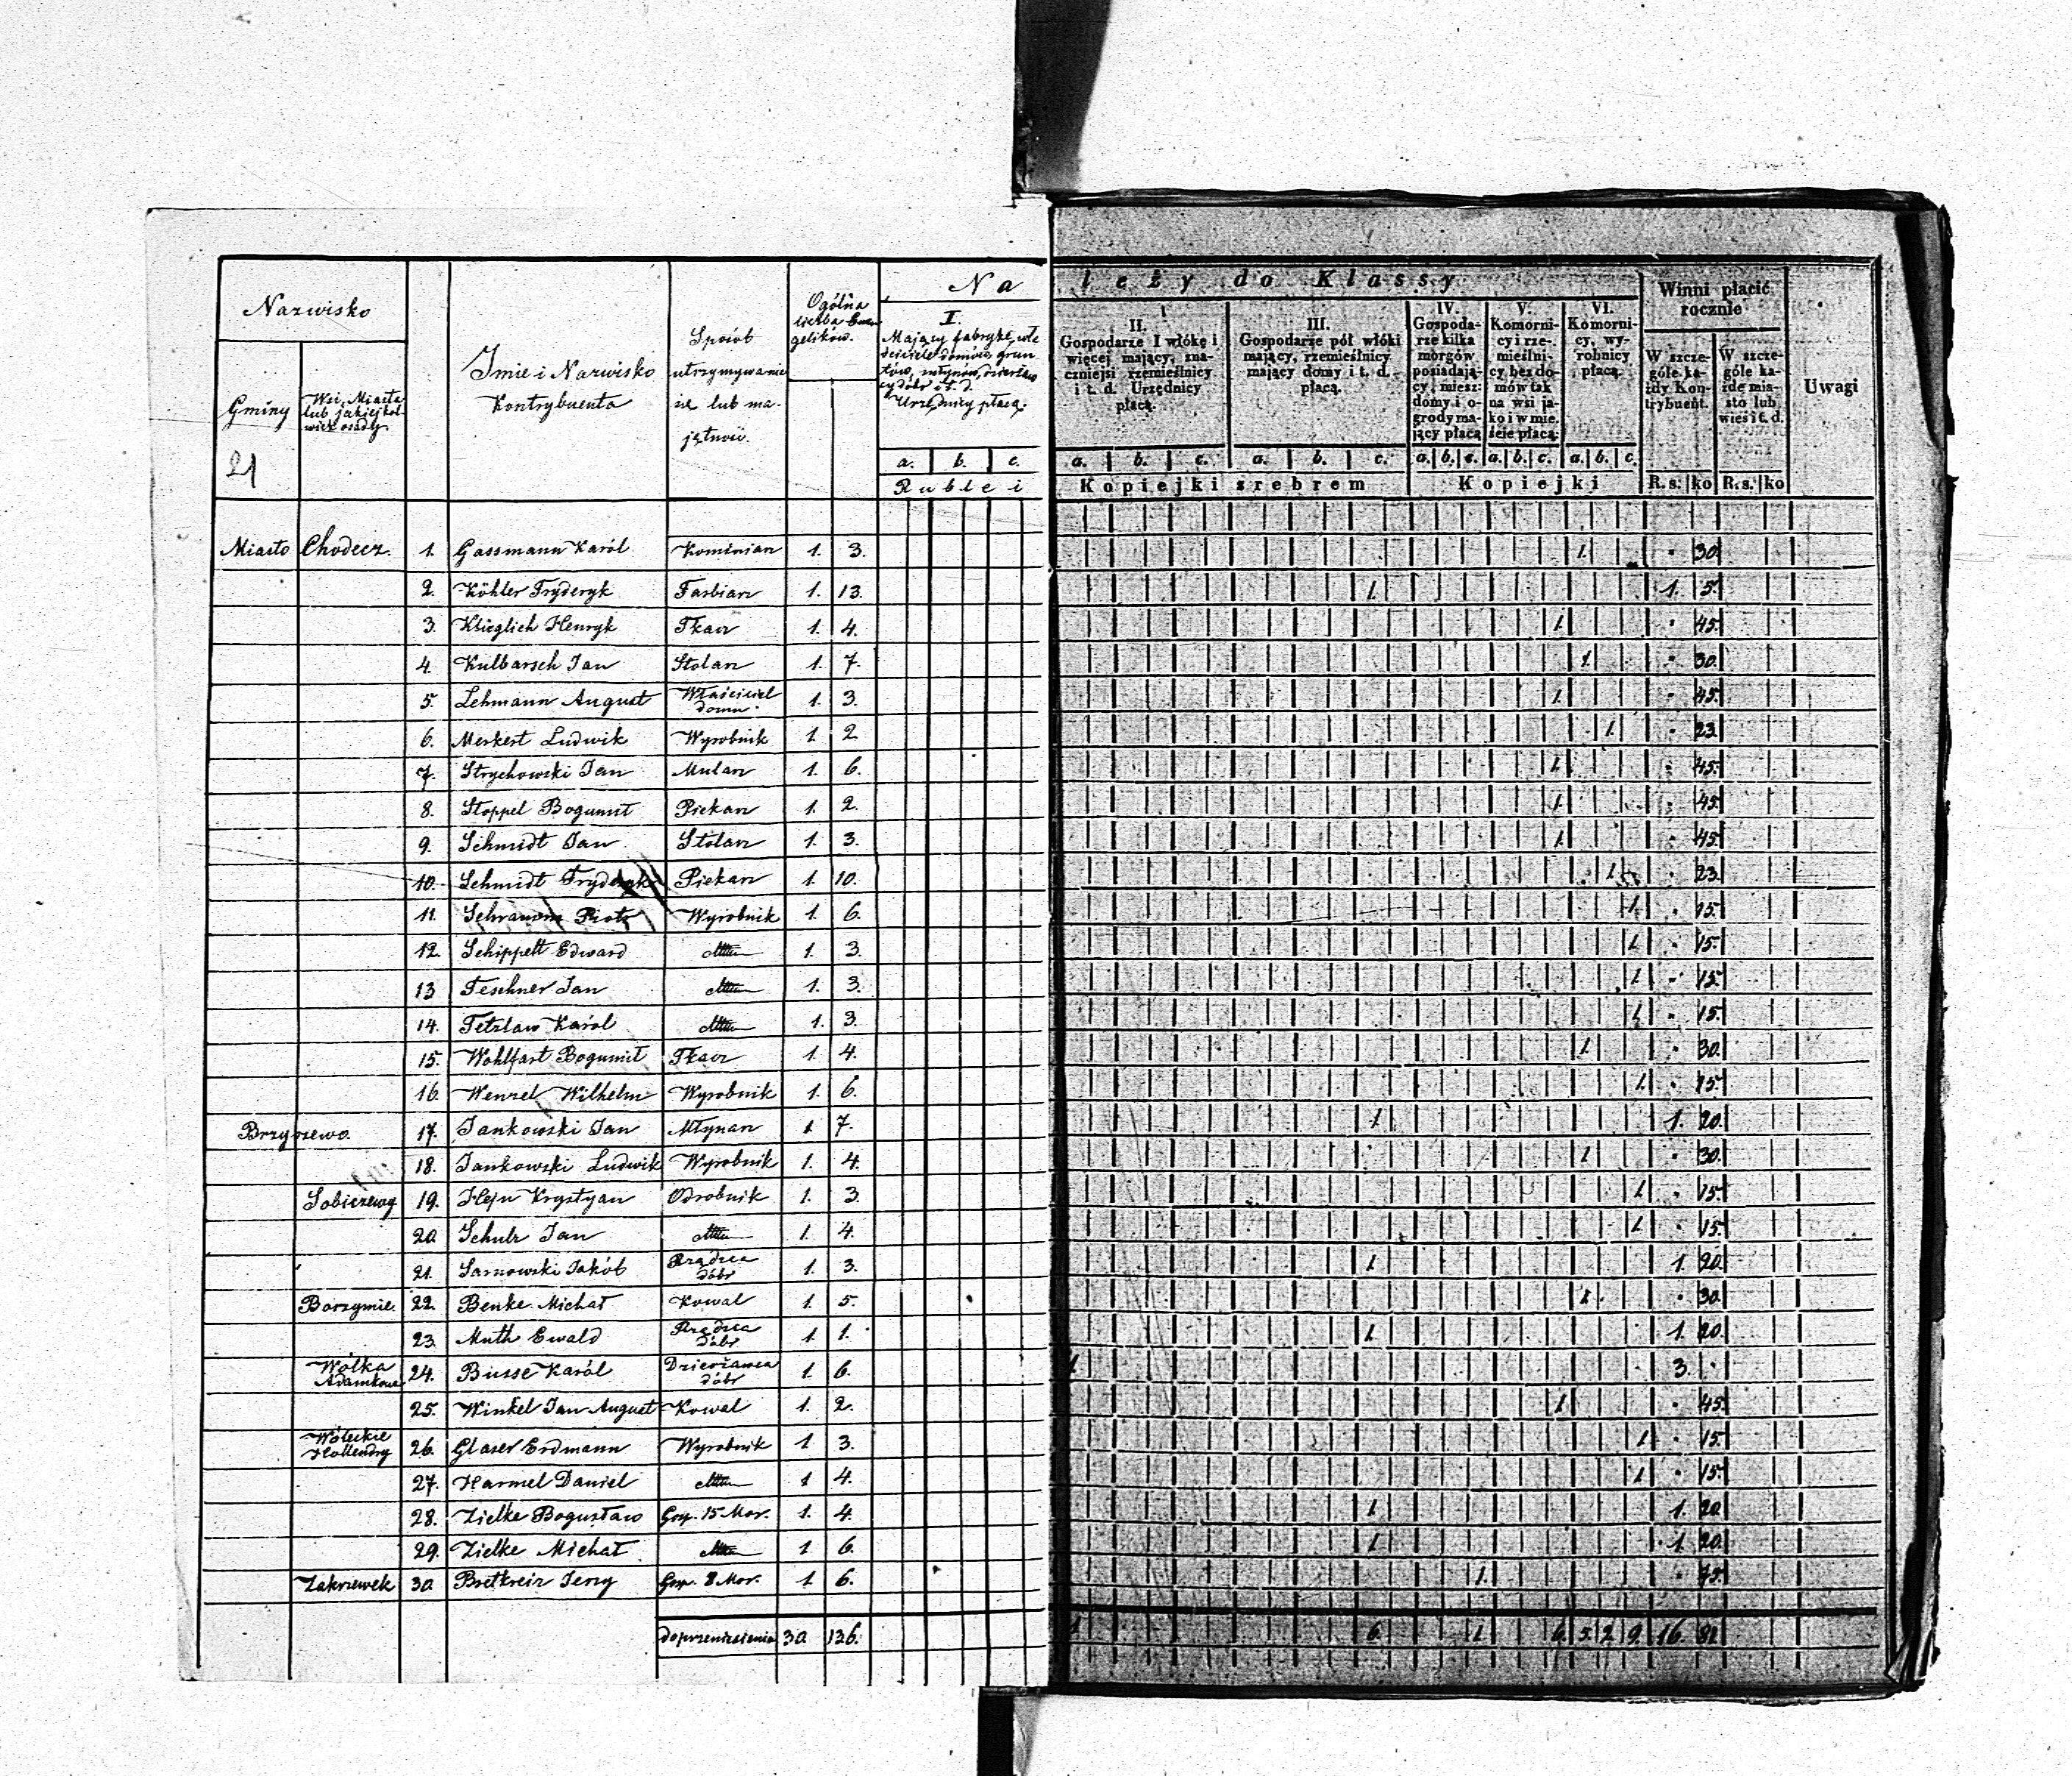 Nazwisko
Gminy
Wsi, Miasta lub jakiejkolwiek osady.
21
Imie i Nazwisko Kontrybuenta
Sposób utrzymywania się lub majętność.
Ogólna liczba Ewangelików.
Na leży do Klassy
I. Mający fabrykę, właściciele domów, gruntów, młynów, dzierżawcy dóbr i t. d. Urzędnicy płacą.
II. Gospodarze 1 włókę i więcej mający, znaczniejsi rzemieślnicy i t. d. Urzędnicy płacą.
III. Gospodarze pół włóki mający, rzemieślnicy mający domy i t. d. płacą.
IV. Gospodarze kilka morgów posiadający, miesz: domy i ogrody mający płacą
V. Komornicy i rzemieślnicy bez domów tak na wsi jako i w mieście płacą:
VI. Komornicy, wyrobnicy płacą.
Winni płacić rocznie
W szczególe każdy Kontrybuent.
W szczególe każde miasto lub wieś i t. d.
Uwagi
a. b. c. a. b. c. a. b. c. a. b. c. a. b. c. a. b. c.
Rublei Kopiejki srebrem Kopiejki R. s. ko R. s. ko
Miasto Chodecz. 1. Gassmann Karól Kominian 1. 3. 1. " 30.
2. Köhler Fryderyk Farbian 1. 13. 1. 1. 5.
3. Klüglich Henryk Tkacz 1. 4. 1. " 45.
4. Kulbarsch Jan Stolan 1. 7. 1. " 30.
5. Lehmann August Właściciel domu 1. 3. 1. " 45.
6. Merkert Ludwik Wyrobnik 1. 2. 1. " 23.
7. Strychowski Jan Mulan 1. 6. 1. " 45.
8. Stoppel Bogumił Piekan 1. 2. 1. " 45.
9. Schmidt Jan Stolan 1. 3. 1. " 45.
10. Schmidt Fryderyk Piekan 1. 10. 1. " 23.
11. Piotr Wyrobnik 1. 6. 1. " 15.
12. Schippelt Edward 1. 3. 1. " 15.
13 Teschner Jan 1. 3. 1. " 15.
14. Tetzlaw Karól 1. 3. 1. " 15.
15. Wohlfart Bogumił Tkacz 1. 4. 1. " 30.
16. Wenzel Wilhelm Wyrobnik 1. 6. 1. " 15.
Brzyszewo. 17. Jankowski Jan Młynan 1 7. 1 1. 20.
18. Jankowski Ludwik Wyrobnik 1. 4. 1 " 30.
Sobiczewy 19. Hejn Krystyan Odrobnik 1. 3. 1. " 15.
20. Schulz Jan 1. 4. 1. " 15.
21. Sarnowski Jakób Rządca dóbr 1. 3. 1 1. 20.
Borzymie. 22. Benke Michał Kowal 1. 5. 1. " 30
23. Muth Ewald Rządca dóbr 1. 1. 1. 1. 20.
Wólka Adamkowa 24. Busse Karól Dzierżawca dóbr 1. 6. 1 3. "
25. Winkel Jan August Kowal 1. 2. 1 " 45.
Wóleckie Hollendry 26. Glaser Erdmann Wyrobnik 1 3. 1 " 15.
27. Harmel Daniel 1 4. 1 " 15.
28. Zielke Bogusław Gosp. 15 Mor. 1. 4. 1 1. 20.
29. Zielke Michał 1 6. 1 1 20.
Zakrzewek 30. Jerzy Gosp. 8 Mor. 1 6. 1. " 75.
do przeniesienia 30. 136. 1 6. 1. 6. 5. 2. 9. 16. 81